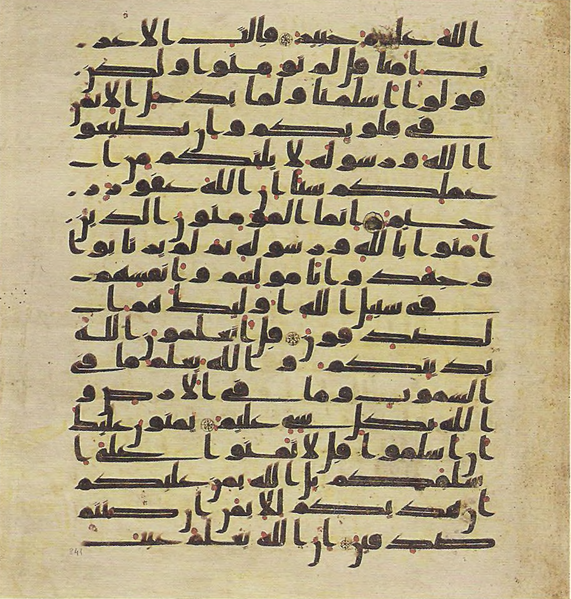 الله عليم خبير قالت الاعر
ب امنا قل لم تومنوا ولكن
قولوا اسلمنا ولما يدخل الايمن
في قلوبكم وان تطيعو
ا الله ورسوله لا يلتكم من ا
عملكم شيا ان الله غفور ر
حيم انما المومنون الذين
امنوا بالله ورسوله ثم لم يرتابوا
وجهدوا بامولهم وانفسهم
في سبيل الله اوليك هم ا
لصدقون قل اتعلمون الله
بدينكم والله يعلم ما في
السموت وما في الارض و
الله بكل شي عليم يمنون عليك
ان اسلموا قل لا تمنوا على ا
سلمكم بل الله يمن عليكم
ان هديكم للايمن ان كنتم
صدقين ان الله يعلم غيب
241